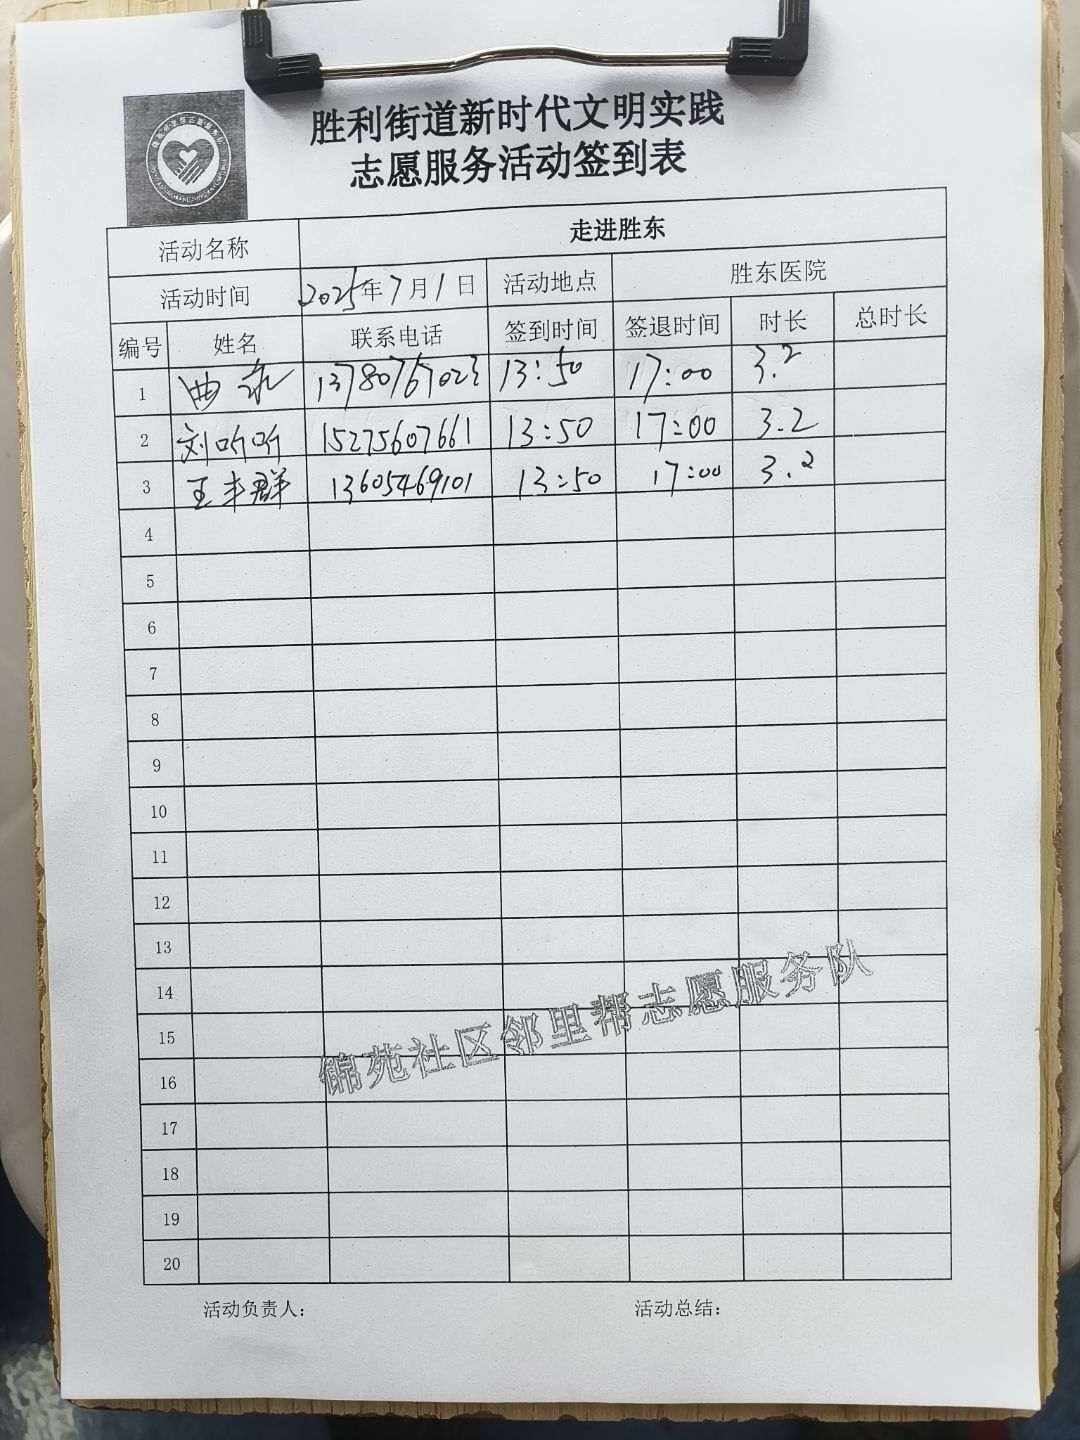 胜利街道新时代文明实践
志愿服务活动签到表
活动名称 走进胜东
活动时间 2025年7月1日 活动地点 胜东医院
编号 姓名 联系电话 签到时间 签退时间 时长 总时长
1 曲 13780767023 13:50 17:00 3.2
2 刘听听 15275607661 13:50 17:00 3.2
3 王丰群 13605469101 13:50 17:00 3.2
4
5
6
7
8
9
10
11
12
13
14
15
16
17
18
19
20
锦苑社区邻里帮志愿服务队
活动负责人： 活动总结：